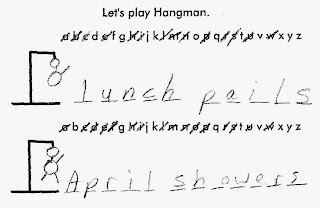 Let's play Hangman.
a b c d e f g h i j k l m n o p q r s t u v w x y z
lunch pails
a b c d e f g h i j k l m n o p q r s t u v w x y z
April showers